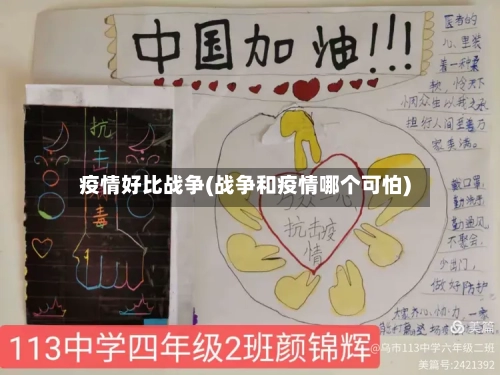 中国加油!!!
医者的
心里装
着一种柔
秧 怜天下
小因众生以我之永
担行人间至善乃
家美满。
抗
击
病
毒
疫情好比战争(战争和疫情哪个可怕)
抗击疫
情
戴口罩
勤洗手
勤通风
不聚会
少出门,
做好防护
113中学四年级2班颜锦辉
美篇
@乌市113中学六年级二班
美篇号:2421392